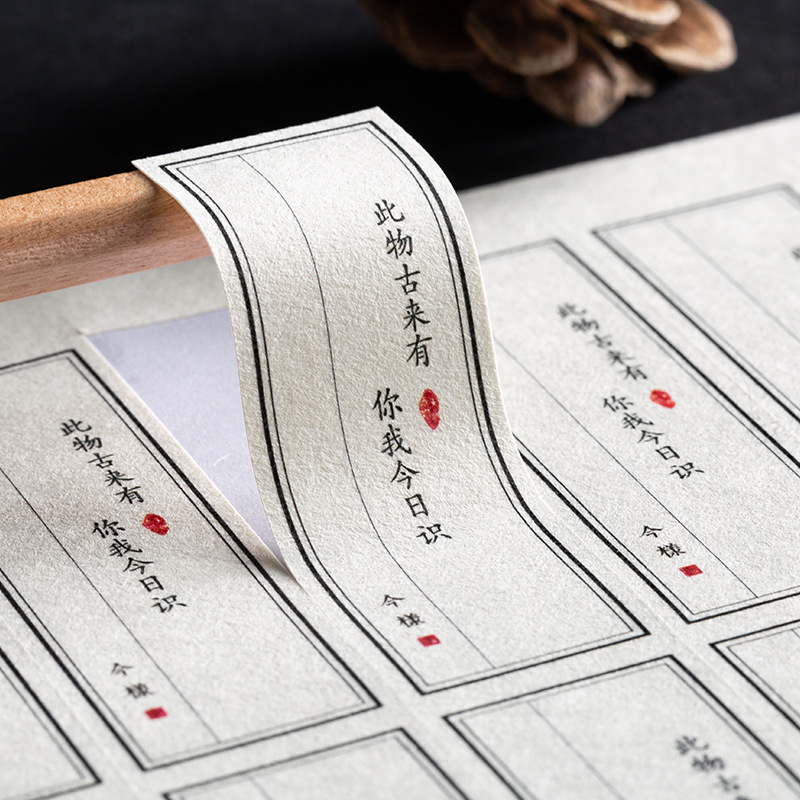 此物古来有
你我今日识
今様
此物古来有
你我今日识
今様
此物古来有
你我今日识
今様
此物